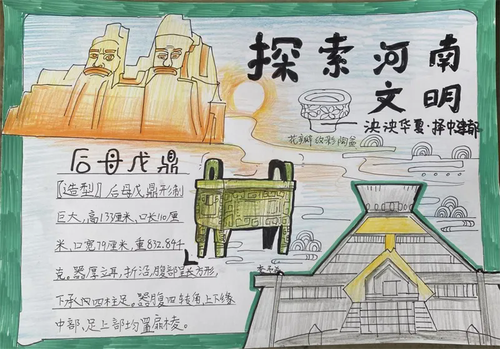 探索河南
文明
泱泱华夏·择中建都
花瓣纹彩陶盆
后母戊鼎
【造型】后母戊鼎形制
巨大,高133厘米、口长110厘
米、口宽79厘米,重832.84千
克。器厚立耳,折沿,腹部呈长方形,
下承四柱足。器腹四转角、上下缘
中部、足上部均置扉棱。